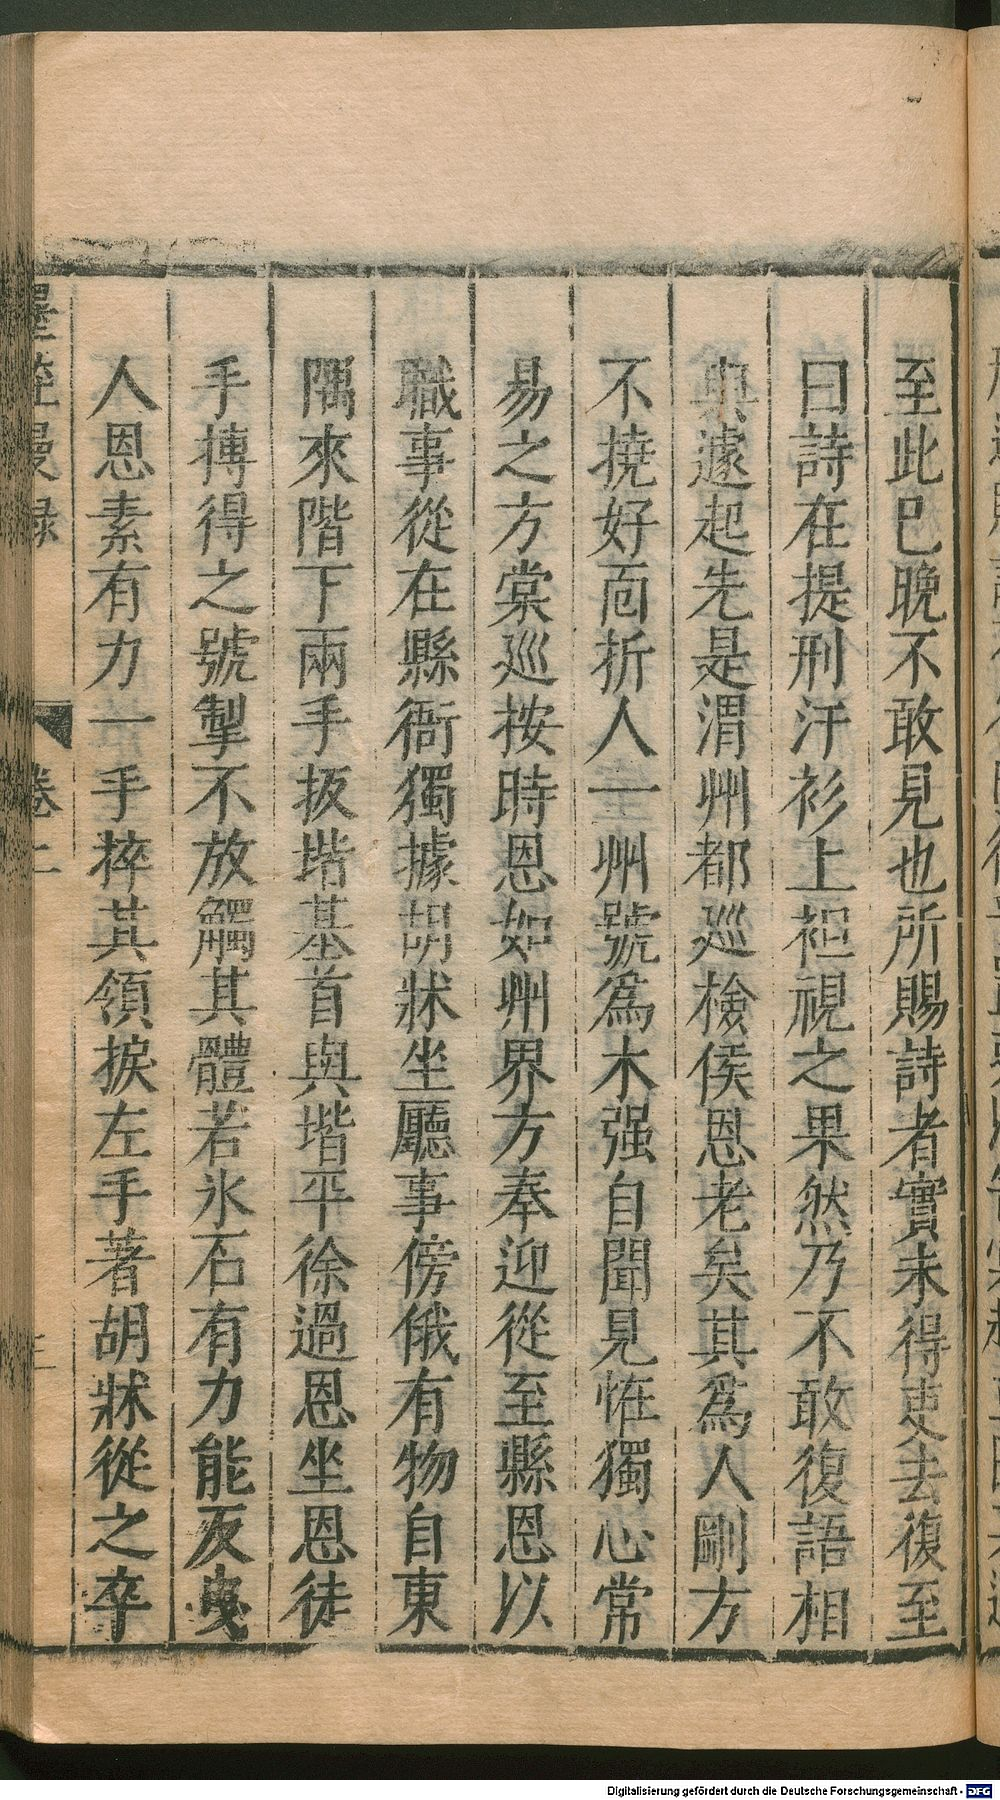 至此巳晚不敢見也所賜詩者實未得吏去復至
曰詩在提刑汗衫上袒視之果然乃不敢復語相
與遽起先是渭州都巡檢侯恩老矣其爲人剛方
不撓好靣折人一州號爲木强自聞見恠獨心常
易之方棠巡按時恩如州界方奉迎從至縣恩以
職事從在縣衙獨據胡牀坐廳事傍俄有物自東
隅來階下兩手扳堦基首與堦平徐過恩坐恩徒
手摶得之號掣不放觸其體若氷石有力能反曳
人恩素有力一手捽其領捩左手著胡牀從之卒
墨莊漫錄
卷二
Digitalisierung gefördert durch die Deutsche Forschungsgemeinschaft - DFG